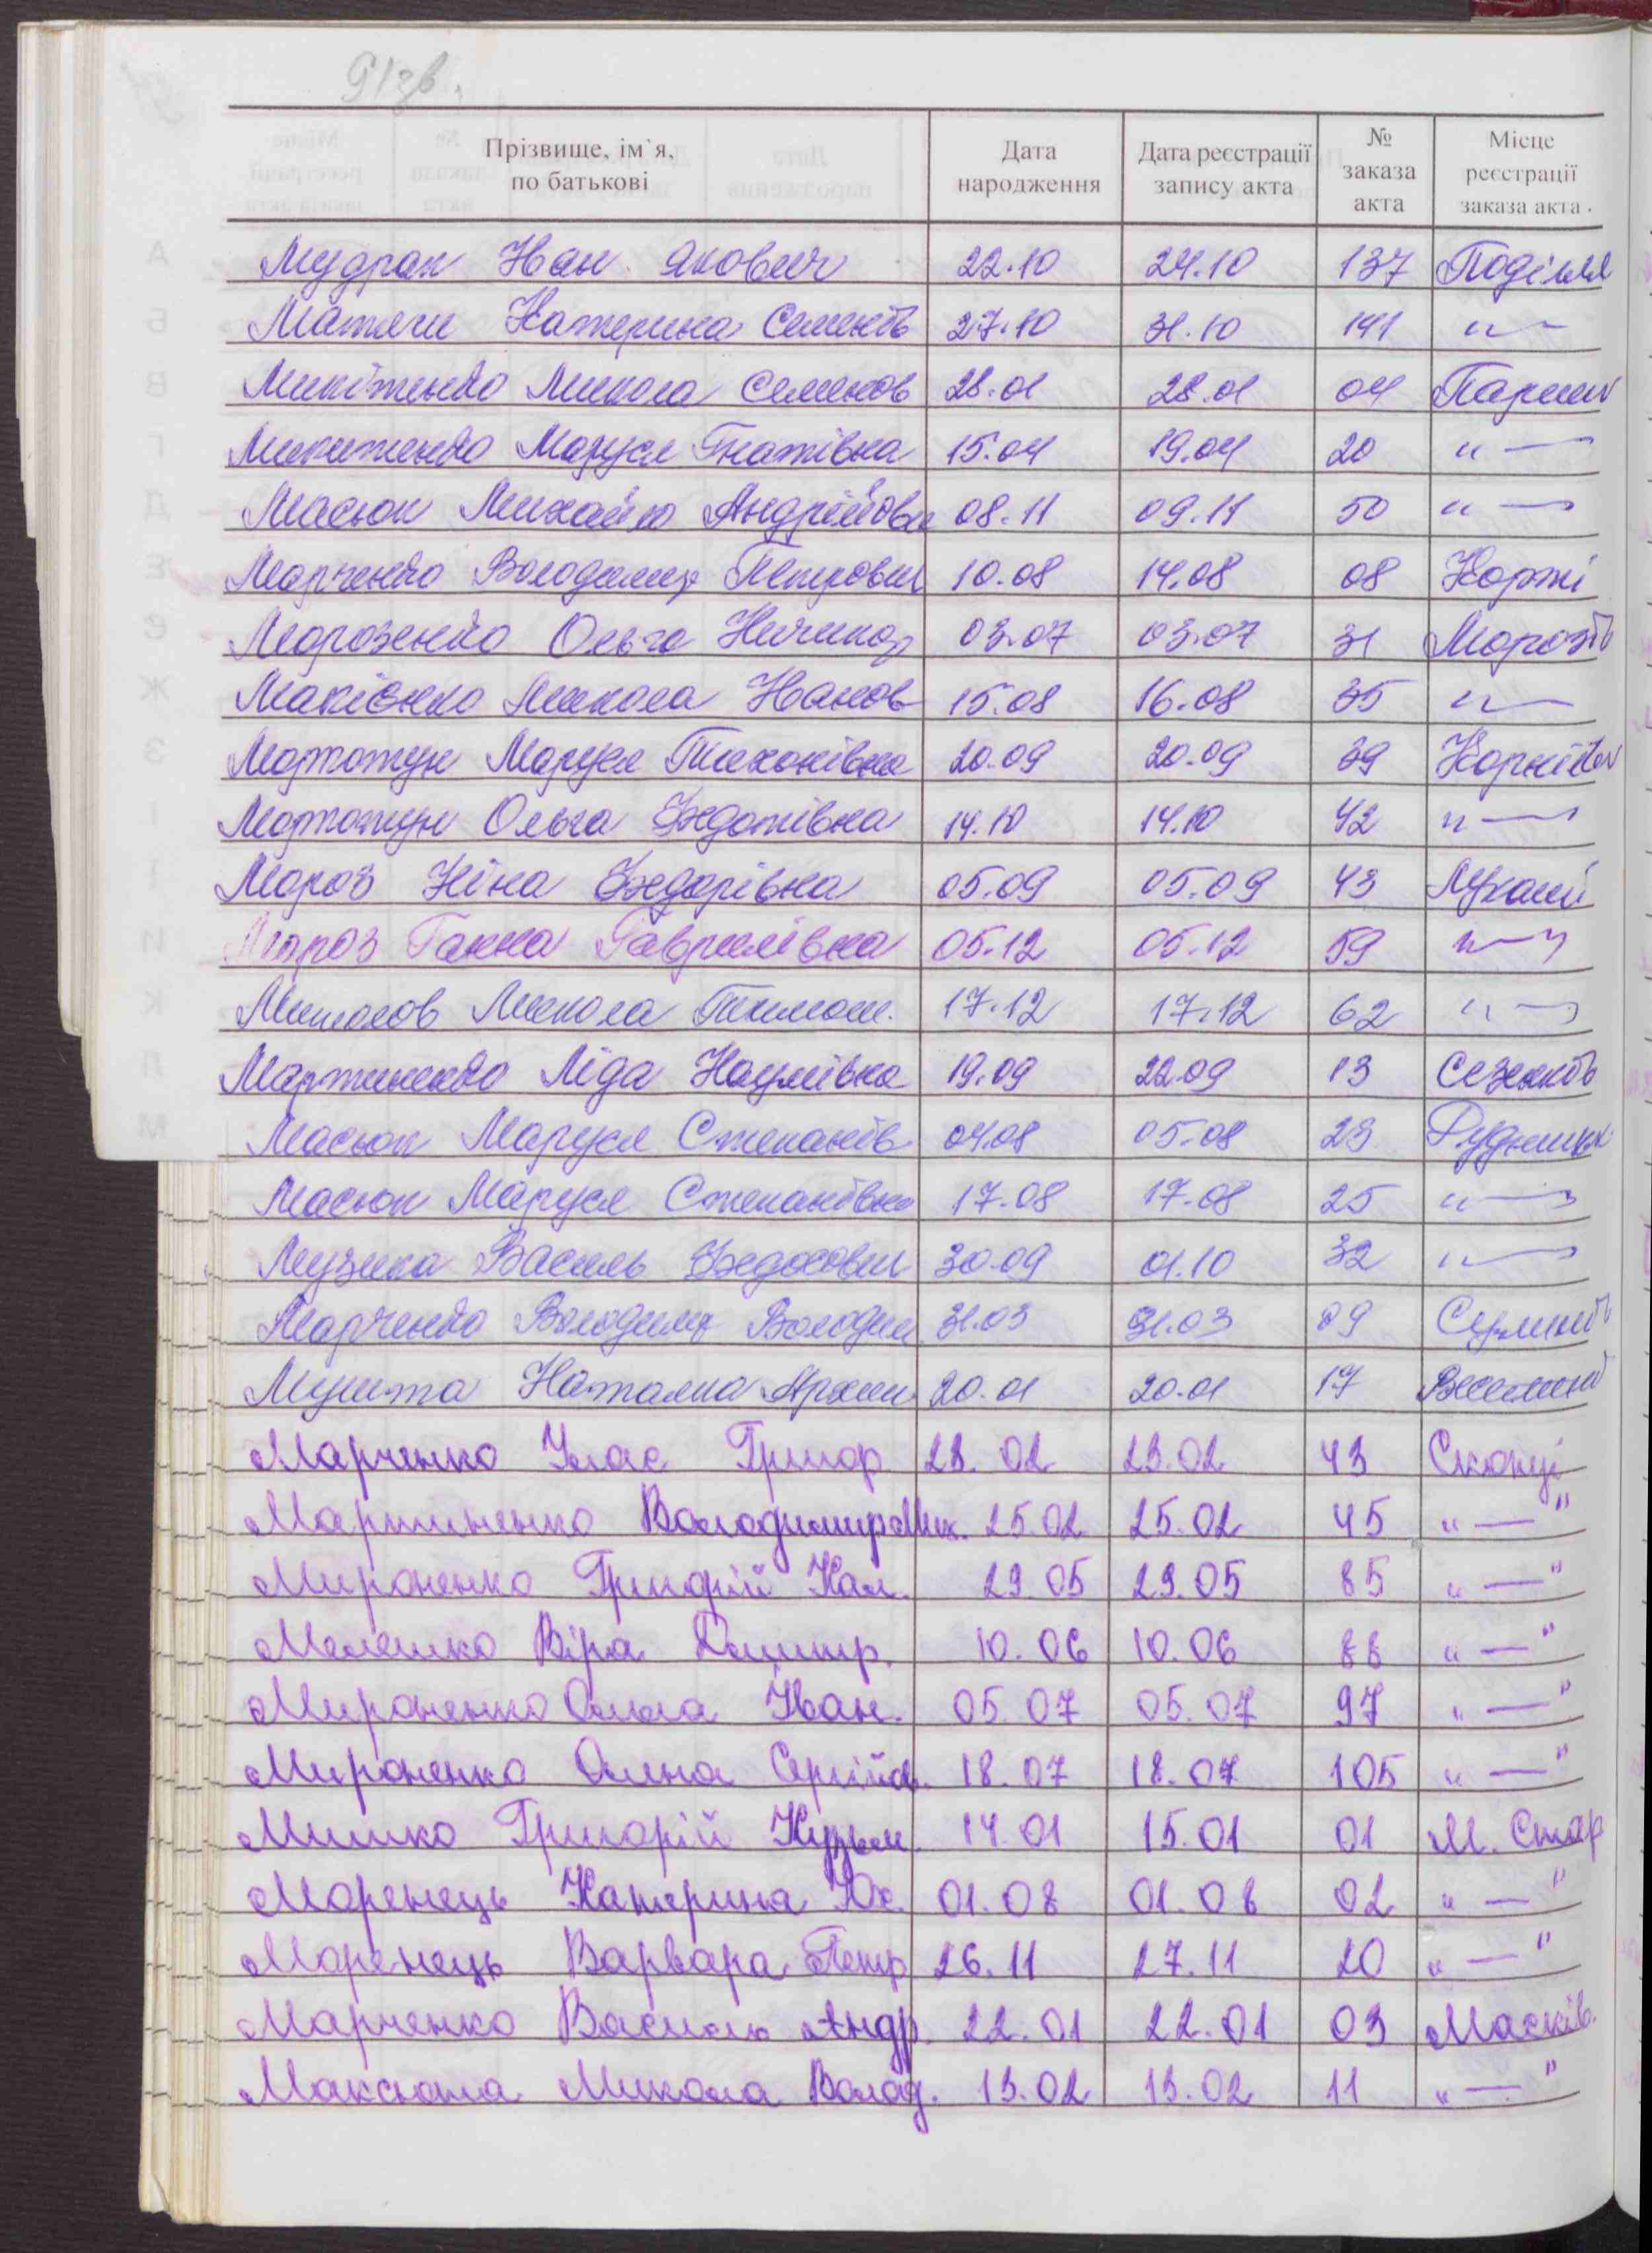 91зв.
Прізвище, ім`я, по батькові Дата народження Дата реєстрації запису акта № заказа акта Місце реєстрації заказа акта
Мудрак Іван Якович 22.10 24.10 137 Поділля
Матяги Катерина Семенів 27.10 31.10 141 "—
Микітенко Микола Семенов 28.01 28.01 04 Паришк
Микитенко Маруся Гнатівна 15.04 19.04 20 "—
Масюк Михайло Андрійови 09.11 50 "— 08.11
Марченко Володимир Петрович 10.08 14.08 08 Коржі
Морозенко Ольга Ничипор 03.07 03.07 31 Морозів
Макієнко Микола Іванов 15.08 16.08 35 "—
Мототун Маруся Тихонівна 20.09 20.09 39 Корнієв
Мототун Ольга Федотівна 14.10 14.10 42 "—
Мороз Ніна Федорівна 05.09 05.09 43 Лукаші
Мороз Ганна Гаврилівна 05.12 05.12 59 "—"
Микола Тимош. 17.12 17.12 62 "—
Мартиненко Ліда Наумівна 19.09 22.09 13 Сезенків
Масюк Маруся Степанів 04.08 05.08 23 Рудницьк
Масюк Маруся Степанівна 17.08 17.08 25 "—
Музика Василь Федосович 30.09 01.10 32 "—
Марченко Володимир Володим 31.03 31.03 09 Сулимів
Наталка Архип 20.01 20.01 17 Веселинів
Марченко Улас Григор 23.02 23.02 43 Скопці
Мартиненко Володимир Мик. 25.02 25.02 45 "—"
Мироненко Григорій Кал. 29.05 29.05 85 "—"
Мелешко Віра Дмитр. 10.06 10.06 88 "—"
Мироненко Ольга Іван. 05.07 05.07 97 "—"
Мироненко Олена Сергійов. 18.07 18.07 105 "—"
Мишко Григорій Кузьм. 14.01 15.01 01 М. Стар
Маренець Катерина Юх. 01.08 01.08 02 "—"
Маренець Варвара Петр 26.11 27.11 20 "—"
Марченко Василь Андр. 22.01 22.01 03 Масків.
Микола Волод. 13.02 13.02 11 "—"